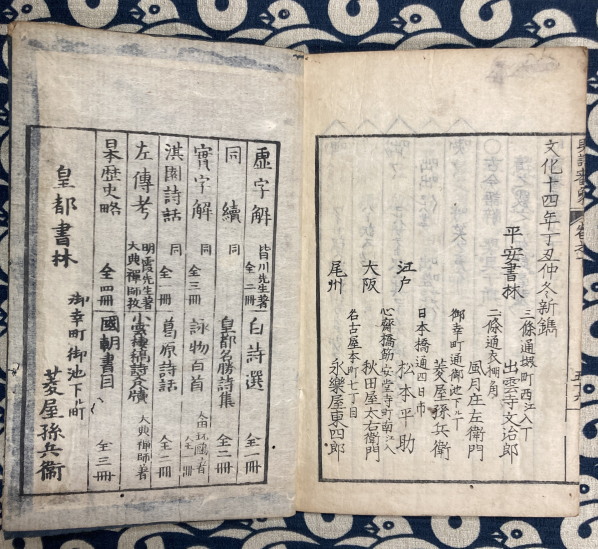 文化十四年丁丑仲冬新鐫
三條通堺町西江入丁
平安書林 出雲寺文治郎
二條通衣棚角
風月庄左衛門
御幸町通御池下ル丁
菱屋孫兵衛
日本橋通四日市
江戸 松本平助
心齋橋筋安堂寺町南江入
大阪 秋田屋太右衛門
名古屋本町七丁目
尾州 永樂屋東四郎
虛字解 皆川先生著 全二冊 白詩選 全一冊
同續 同 皇都名勝詩集 全二冊
實字解 同 全三冊 詠物百首
淇園詩話 同 全一冊 葛原詩話
左傳考 明霞先生著 大典禪師校 小雲棲稿詩尺牘 大典禪師著
日本歴史略 全四冊 國朝書目 全三冊
皇都書林 御幸町御池下ル町 菱屋孫兵衞